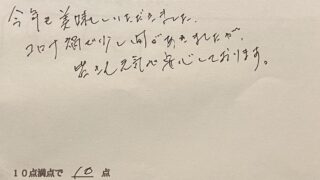 今年も美味しくいただきました。
コロナ禍で少し間があきましたが、
皆さん元気で安心しております。
10点満点で 10 点